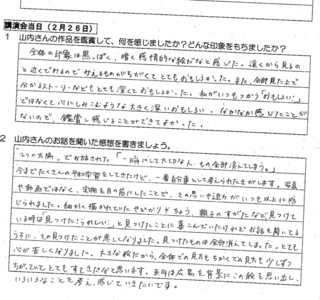 講演会当日（2月26日）
1 山内さんの作品を鑑賞して、何を感じましたか？どんな印象をもちましたか？
全体の印象は黒っぽく、暗く感情的な絵だなと感じた。遠くから見るの
と近くでみるので
がちがくてとてもおもしろかった。また、全部見た上で
分かるストーリーなどもとても深くておもしろかった。私がいつもつかう「おもしろい」
ではなくて心にしみこむような大きく深いおもしろい。なかなか感じたことが
ないので、鑑賞し感じることができてよかった。
2 山内さんのお話を聞いた感想を書きましょう。
"2つの太陽"でお話された「一瞬にして大切な人、もの全部消えてしまう。」
今までたくさんの平和学習をしてきたけど、一番
考えられた気がします。写真
や動画ではなく、実物を目の前にしたことで、その思いや迫力がいつも以上に感
じられました。細かく描かれていたやどかりやちょう、親子のすがたなど見つけて
いる時は「見つけた！うれしい」と見つけたことに喜んでいたけれどお話を聞いてる
うちに、その見つけたことが悲しくなりました。見つけたものは全部消えてしまった。とても
心が苦しくなりました。大きな絵だから、全体での見方もちかくでの見方も少しずつ
ちがっていてとてもすてきだなと思います。
広島を背景にこの絵を思い出し、
いろいろなことを考え、感じていきたいです。